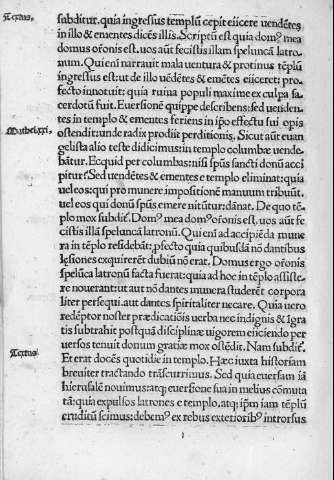 Textus.
subditur. quia ingressus templū cepit eiicere uendētes
in illo & ementes dicēs illis. Scriptū est quia domꝰ mea
domus orōnis est. uos aūt fecistis illam speluncā latro-
num. Qui eni narrauit mala uentura & protinus tēplū
ingressus est: ut de illo uēdētes & emētes eiiceret: pro-
fecto innotuit: quia ruina populi maxime ex culpa sa-
cerdotū fuit. Euersionē quippe describens: sed uenden-
tes in templo & ementes feriens in ipo effectu sui opis
Mathei.xxi.
ostendit: unde radix prodiit perditionis. Sicut aūt euan
gelista alio teste didicimus: in templo columbæ uende-
bātur. Et quid per columbas: nisi spūs sancti donū acci
pitur? Sed uendētes & ementes e templo eliminat: quia
uel eos: qui pro munere impositionē manuum tribuūt.
uel eos qui donū spūs emere nitūtur: dānat. De quo tē-
plo mox subdit̄. Domꝰ mea domꝰ orōnis est. uos aūt fe
cistis illā speluncā latronū. Qui eni ad accipiēda mune
ra in tēplo residebāt: ꝓfecto quia quibusdā nō dantibus
lęsiones exquirerēt dubiū nō erat. Domus ergo orōnis
spelūca latronū facta fuerat: quia ad hoc in tēplo assiste-
re nouerant: ut aut nō dantes munera studerēt corpora
liter persequi. aut dantes spiritaliter necare. Quia uero
redēptor noster prædicatiōis uerba nec indignis & īgra
tis subtrahit postquā disciplinæ uigorem eiiciendo per
uersos tenuit donum gratiæ mox ostēdit. Nam subdit̄.
Textus
Et erat docēs quotidie in templo. Hæc iuxta historiam
breuiter tractando trāscurrimus. Sed quia euersam iā
hierusalē nouimus: atq; euersione sua in melius cōmuta
tā: quia expulsos latrones e templo. atq; ipm iam tēplū
eruditū scimus: debemꝰ ex rebus exterioribꝰ introrsus